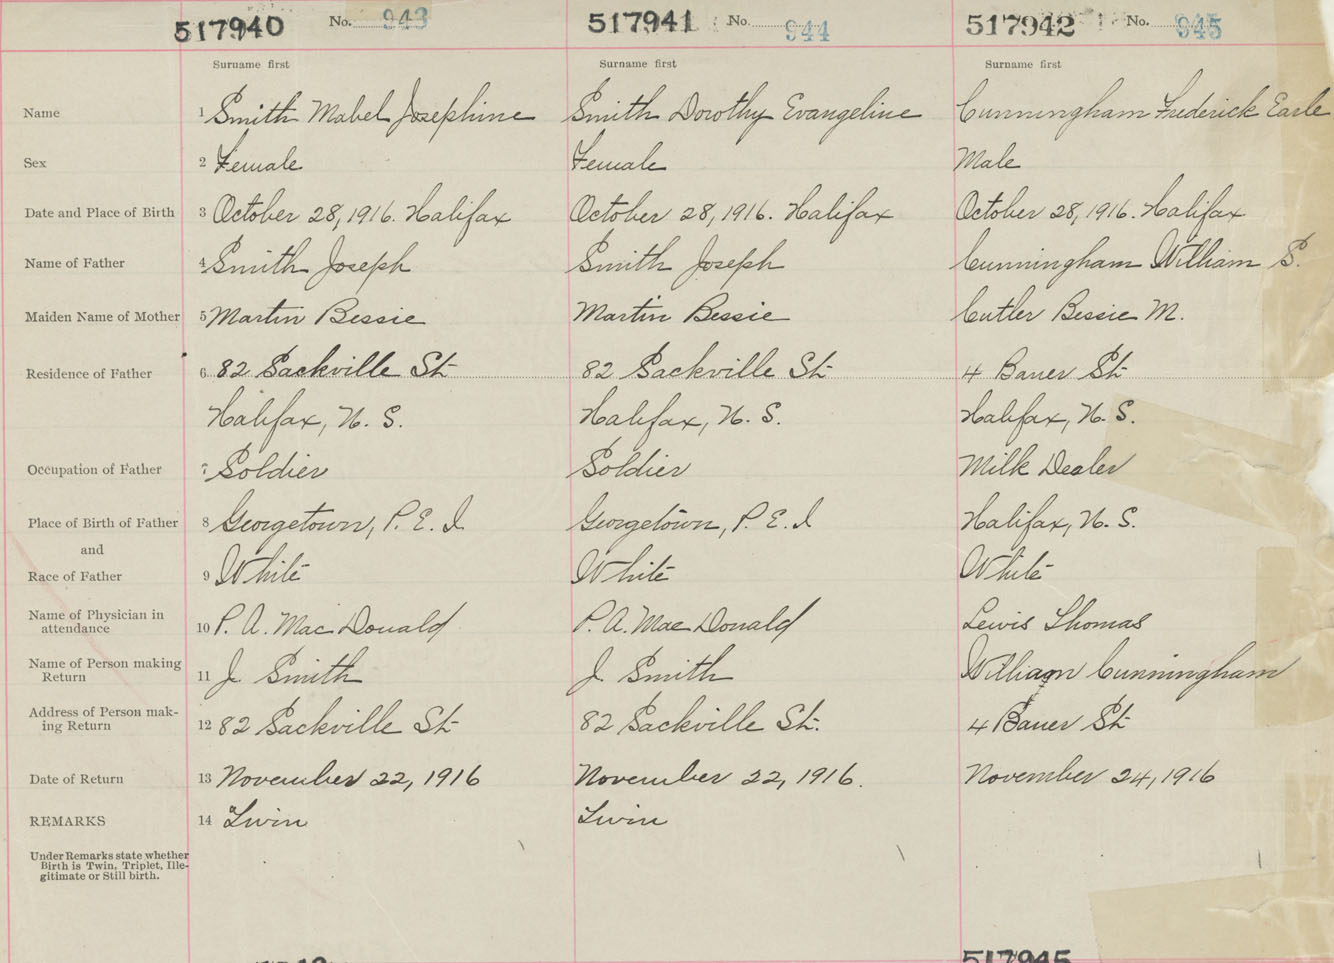 517940 No. 943 517941 No. 944 517942 No. 945
Surname first Surname first Surname first
Name 1 Smith Mabel Josephine Smith Dorothy Evangeline Cunningham Frederick Earle
Sex 2 Female Female Male
Date and Place of Birth 3 October 28, 1916. Halifax October 28, 1916. Halifax October 28, 1916. Halifax
Name of Father 4 Smith Joseph Smith Joseph Cunningham William S.
Maiden Name of Mother 5 Martin Bessie Martin Bessie Cutler Bessie M.
Residence of Father 6 82 Sackville St 82 Sackville St 4 Bauer St
Halifax, N. S. Halifax, N. S. Halifax, N. S.
Occupation of Father 7 Soldier Soldier Milk Dealer
Place of Birth of Father 8 Georgetown, P. E. I Georgetown, P. E. I Halifax, N. S.
and
Race of Father 9 White White White
Name of Physician in
attendance 10 P. A. MacDonald P. A. MacDonald Lewis Thomas
Name of Person making
Return 11 J. Smith J. Smith William Cunningham
Address of Person mak-
ing Return 12 82 Sackville St 82 Sackville St. 4 Bauer St
Date of Return 13 November 22, 1916 November 22, 1916. November 24, 1916
REMARKS 14 Twin Twin
Under Remarks state whether
Birth is Twin, Triplet, Ille-
gitimate or Still birth.
517945